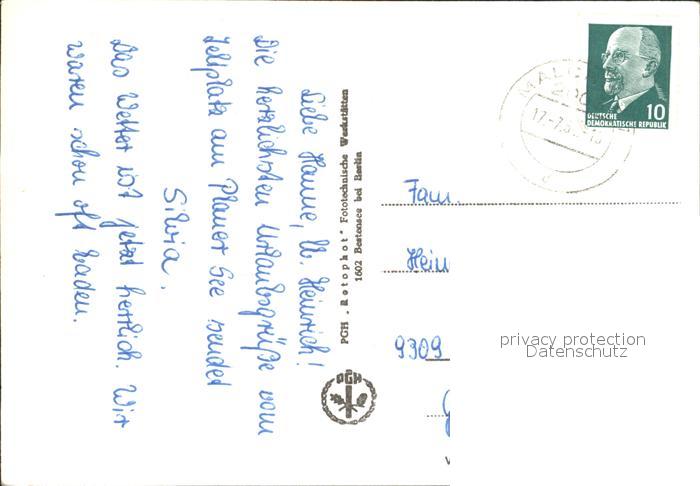 Liebe Hanne, lb. Heinrich!
Die herzlichsten Urlaubsgrüße vom
Zeltplatz am Plauer See sendet
Silvia.
Das Wetter ist jetzt herrlich. Wir
waren schon oft baden.
PGH „Rotophot“ Fototechnische Werkstätten
1602 Bestensee bei Berlin
PGH
DEUTSCHE
DEMOKRATISCHE REPUBLIK
10
Fam.
Hein
9309
privacy protection
Datenschutz